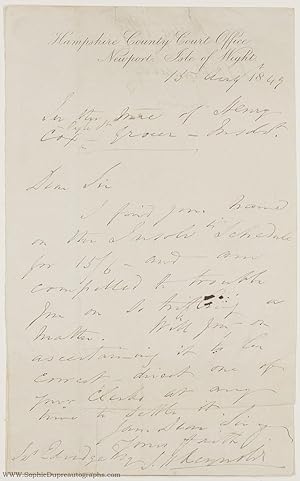 Hampshire County Court Office
Newport, Isle of Wight
15 Aug 1849
In the matter of Henry
Cox Grocer - Insolvt.
Dear Sir
I find your name
on the Insolvts Schedule
for 15/6 - and am
compelled to trouble
you on so trifling a
matter. Will you - on
ascertaining it to be
correct direct one of
your Clerks at any
time to settle it
I am Dear Sir
Yours faithfy
Reynolds
www.SophieDupreautographs.com